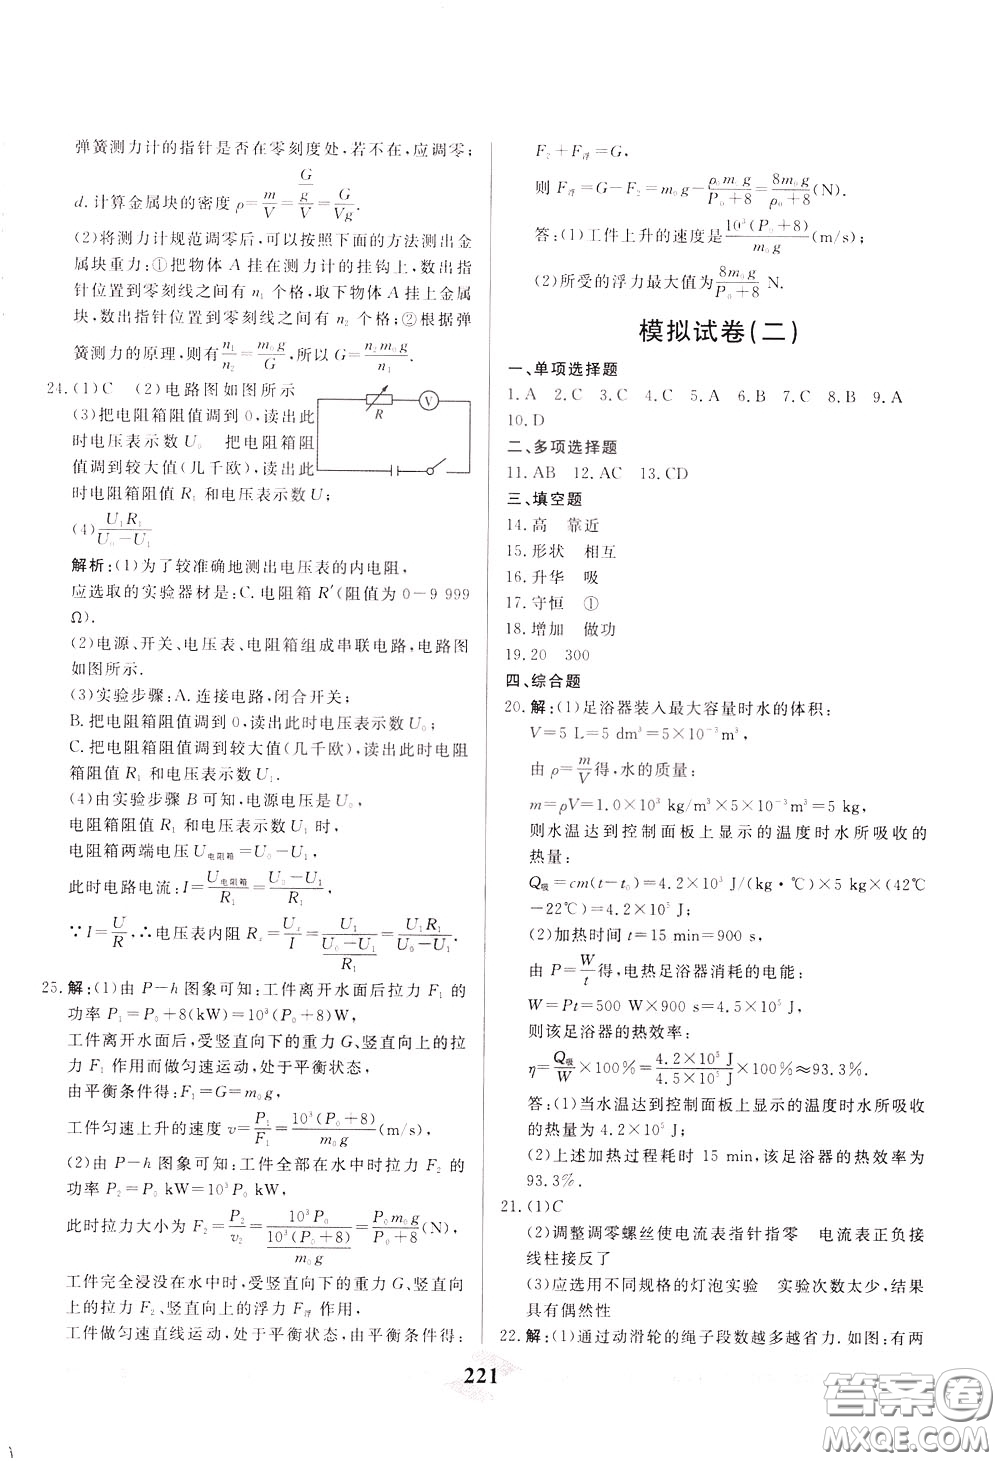 弹簧测力计的指针是否在零刻度处,若不在,应调零;
d.计算金属块的密度 ρ=m/V=(G/g)/V=G/Vg
(2)将测力计规范调零后,可以按照下面的方法测出金
属块重力:①把物体 A 挂在测力计的挂钩上,数出指
针位置到零刻线之间有 n₁ 个格,取下物体 A 挂上金属
块,数出指针位置到零刻线之间有 n₂ 个格;②根据弹
簧测力的原理,则有n₁/n₂=m₀g/G,所以 G=n₂m₀g/n₁.
24.(1)C (2)电路图如图所示
(3)把电阻箱阻值调到 0,读出此
时电压表示数 U₀ 把电阻箱阻
值调到较大值(几千欧),读出此
时电阻箱阻值 R₁ 和电压表示数 U;
R
V
(4)U₁R₁/(U₀-U₁)
解析:(1)为了较准确地测出电压表的内电阻,
应选取的实验器材是:C.电阻箱 R′(阻值为 0-9 999
Ω).
(2)电源、开关、电压表、电阻箱组成串联电路,电路图
如图所示.
(3)实验步骤:A.连接电路,闭合开关;
B.把电阻箱阻值调到 0,读出此时电压表示数 U₀;
C.把电阻箱阻值调到较大值(几千欧),读出此时电阻
箱阻值 R₁ 和电压表示数 U₁.
(4)由实验步骤 B 可知,电源电压是 U₀,
电阻箱阻值 R₁ 和电压表示数 U₁ 时,
电阻箱两端电压 U电阻箱=U₀-U₁,
此时电路电流:I=U电阻箱/R₁=(U₀-U₁)/R₁,
∵I=U/R,∴电压表内阻 Rₓ=Uₓ/I=U₁/((U₀-U₁)/R₁)=U₁R₁/(U₀-U₁).
25.解:(1)由 P-h 图象可知:工件离开水面后拉力 F₁ 的
功率 P₁=P₀+8(kW)=10³(P₀+8)W,
工件离开水面后,受竖直向下的重力 G、竖直向上的拉
力 F₁ 作用而做匀速运动,处于平衡状态,
由平衡条件得:F₁=G=m₀g,
工件匀速上升的速度 v=P₁/F₁=10³(P₀+8)/m₀g(m/s),
(2)由 P-h 图象可知:工件全部在水中时拉力 F₂ 的
功率 P₂=P₀ kW=10³P₀ W,
此时拉力大小为 F₂=P₂/v₂=10³P₀/(10³(P₀+8)/m₀g)=P₀m₀g/(P₀+8)(N),
工件完全浸没在水中时,受竖直向下的重力 G、竖直向
上的拉力 F₂、竖直向上的浮力 F浮 作用,
工件做匀速直线运动,处于平衡状态,由平衡条件得:
F₂+F浮=G,
则 F浮=G-F₂=m₀g-ρ₀m₀g/(P₀+8)=8m₀g/(ρ₀+8)(N).
答:(1)工件上升的速度是10³(P₀+8)/m₀g(m/s);
(2)所受的浮力最大值为8m₀g/(P₀+8) N.
模拟试卷(二)
一、单项选择题
1.A 2.C 3.C 4.C 5.A 6.B 7.C 8.B 9.A
10.D
二、多项选择题
11.AB 12.AC 13.CD
三、填空题
14.高 靠近
15.形状 相互
16.升华 吸
17.守恒 ①
18.增加 做功
19.20 300
四、综合题
20.解:(1)足浴器装入最大容量时水的体积:
V=5 L=5 dm³=5×10⁻³m³,
由 ρ=m/V得,水的质量:
m=ρV=1.0×10³ kg/m³×5×10⁻³m³=5kg,
则水温达到控制面板上显示的温度时水所吸收的
热量:
Q吸=cm(t-t₀)=4.2×10³ J/(kg·℃)×5 kg×(42℃
-22℃)=4.2×10⁵ J;
(2)加热时间 t=15 min=900 s,
由 P=W/t得,电热足浴器消耗的电能:
W=Pt=500 W×900 s=4.5×10⁵ J,
则该足浴器的热效率:
η=Q吸/W×100%=4.2×10⁵ J/4.5×10⁵ J×100%≈93.3%.
答:(1)当水温达到控制面板上显示的温度时水所吸收
的热量为 4.2×10⁵ J;
(2)上述加热过程耗时 15 min,该足浴器的热效率为
93.3%.
21.(1)C
(2)调整调零螺丝使电流表指针指零 电流表正负接
线柱接反了
(3)应选用不同规格的灯泡实验 实验次数太少,结果
具有偶然性
22.解:(1)通过动滑轮的绳子段数越多越省力.如图:有两
221
答案圈
MXQE.COM